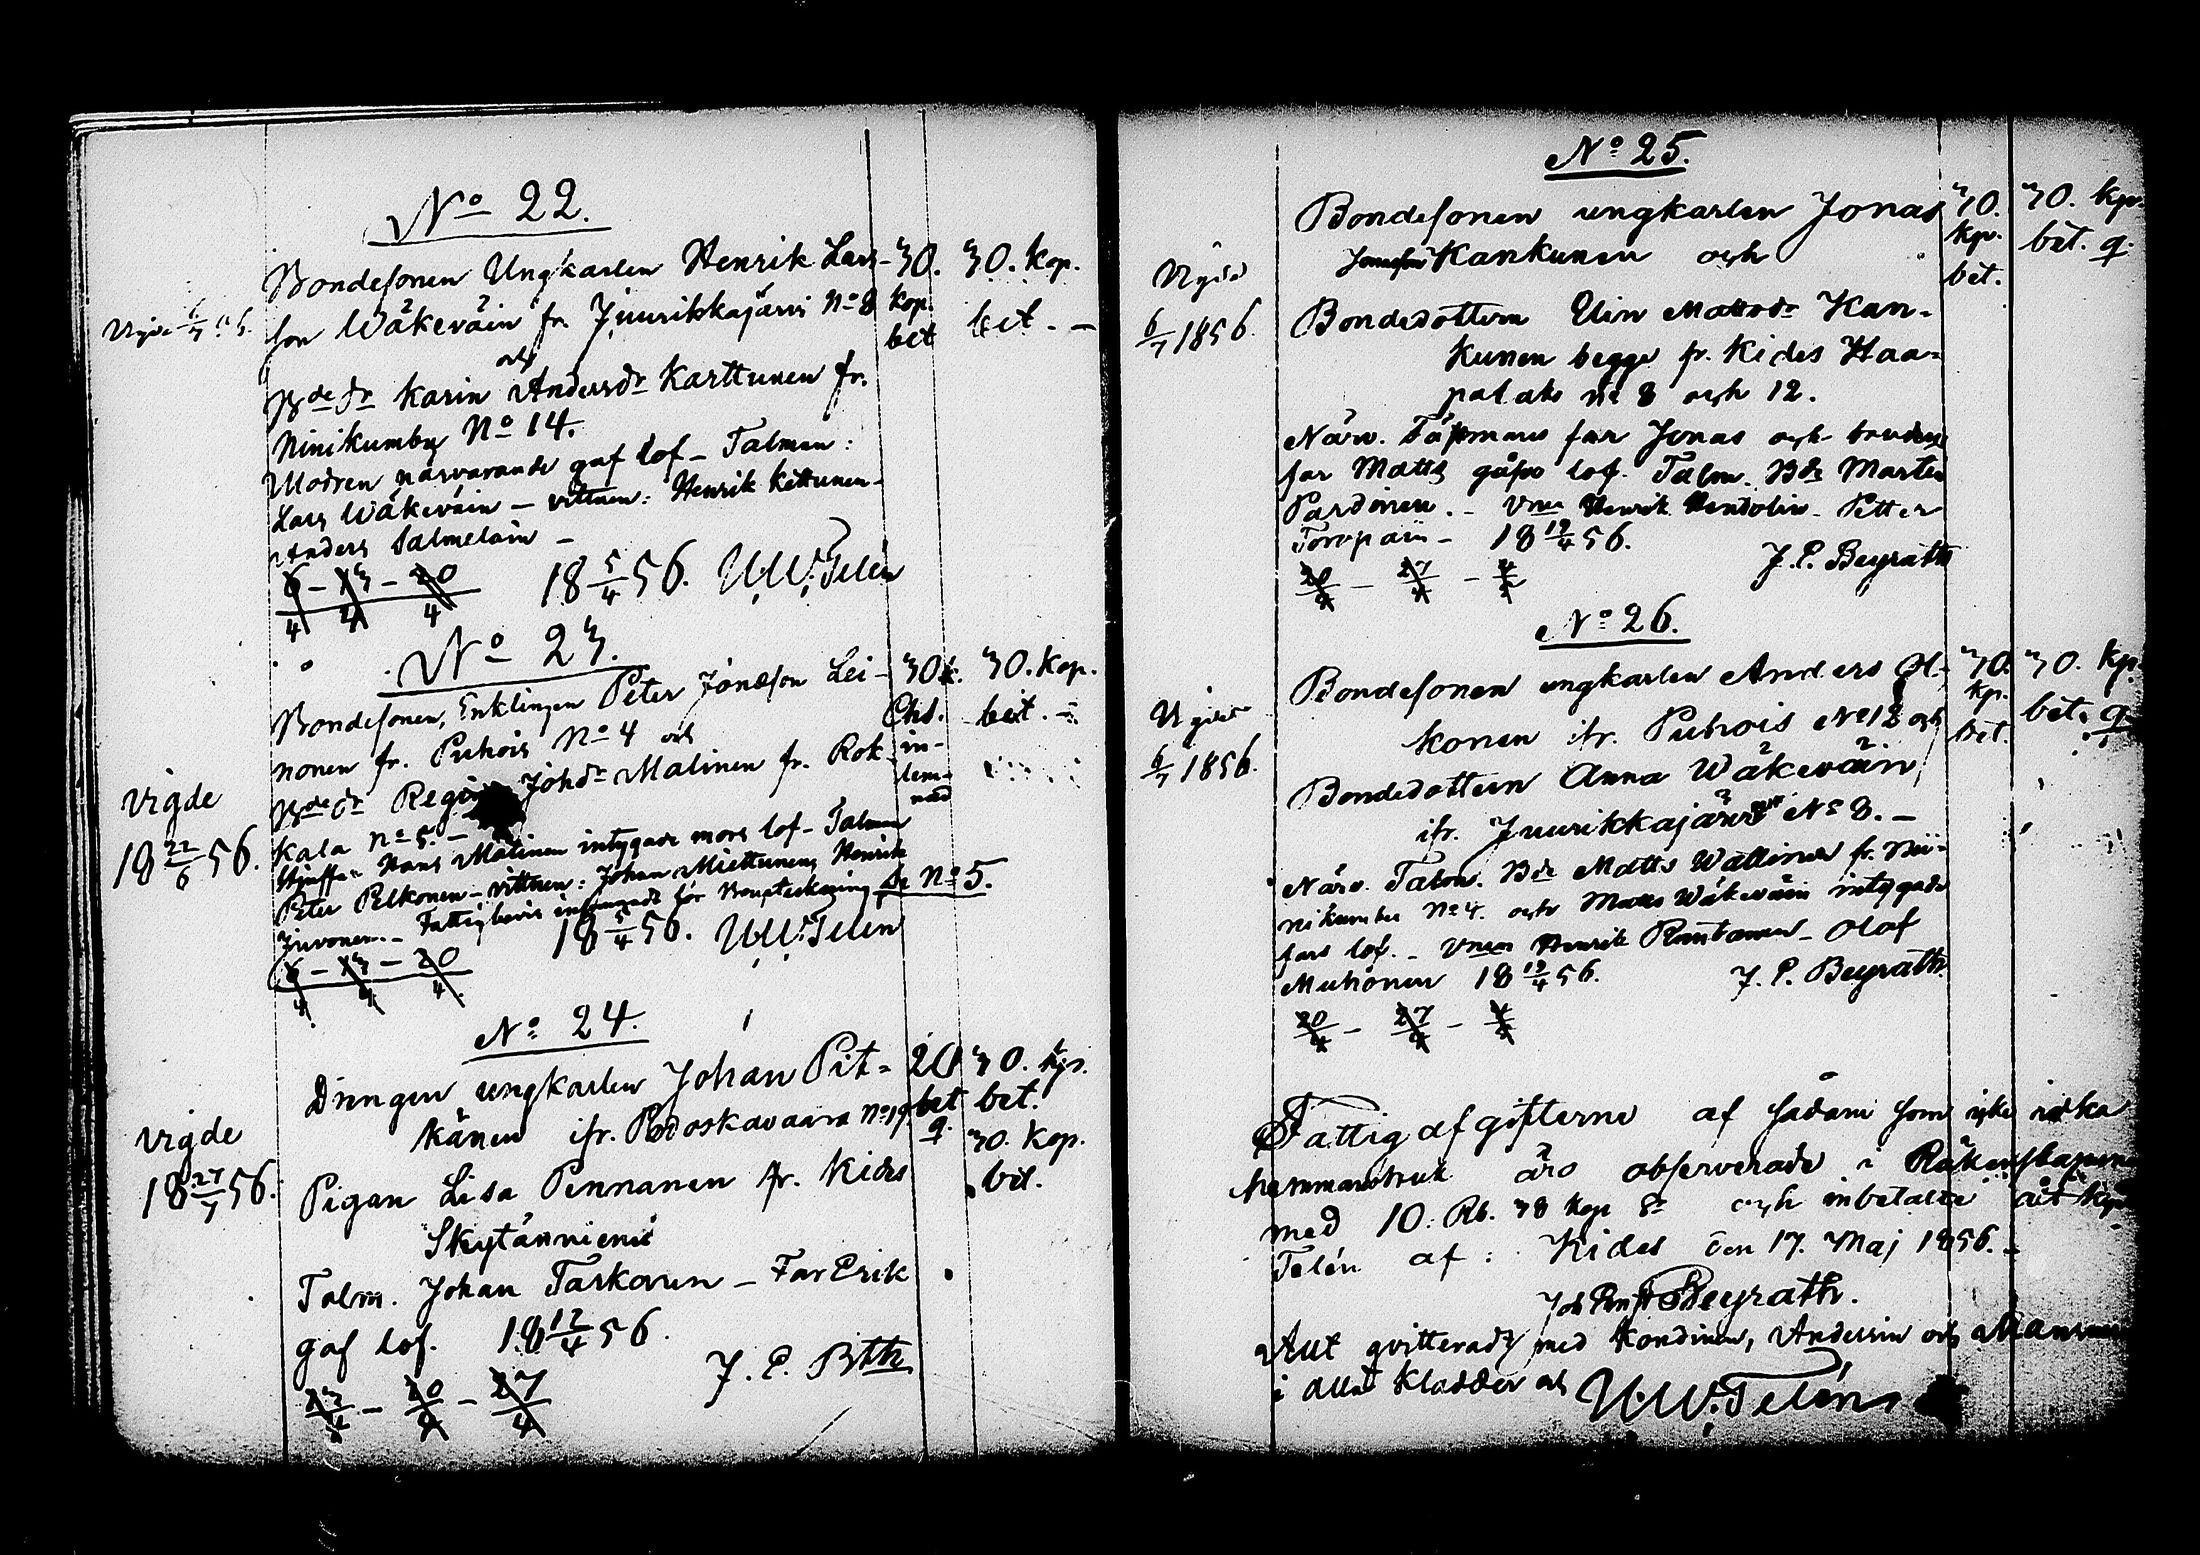 No 22.
Bondesonen Ungkarlen Henrik Lars-
son Wäkeväin fr. Juurikkajärvi No 8
och
Bdedr Karin Andersdr Karttunen fr.
Ninikumby No 14.
Modren närvarande gaf lof - Talman:
Lars Wäkeväin - vittnen: Henrik Kettunen
Anders Salmelain -
6/4 - 13/4 - 20/4
18 5/4 56. U.W. Telén
30. kop. bet
30. kop. bet. -
Vigde 6/7
No 23.
Bondesonen, Enklingen Peter Jonasson Lei-
nonen fr. Puhois No 4 och
Bdedr Johdr Malinen fr. Rok-
kala No 5. -
Hans Malinen intygade mors lof - Talman
Peter Pelkonen - vittnen: Johan Miettunen, Henrik
Jivonen. - Fattigbevis för Bouptekning, se No 5.
6/4 - 13/4 - 20/4
18 5/4 56. U.W. Telén
30 k.
in-
lem-
nad
30. kop.
bet. -
vigde
18 22/6 56.
No 24.
Drengen ungkarlen Johan Pit-
känen ifr. Podoskavaara No 19.
Pigan Lisa Pennanen fr. Kides
Skytänniemi
Talm. Johan Tarkanen - Far Erik
gaf lof. 18 12/4 56.
J. E. Bth
13/4 - 20/4 - 27/4
20
bet
q.
30. kp.
bet.
30. kop.
bet.
vigde
18 27/7 56.
No 25.
Bondesonen ungkarlen Jonas
Jonasson Kankunen och
Bondedottern Elin Mattsdr Kan-
kunen begge fr. Kides Haa-
palaks No 8 och 12.
Närv. far Jonas och brudens
far Matts gåfvo lof. Talm. Bde Marten
Pardinen. - Vnen Henrik Hendolin - Petter
Toropain - 18 19/4 56.
J. E. Beyrath
20/4 - 27/4 -
30.
kp.
bet.
30. kp.
bet. q.
Vigde
6/7 1856.
No 26.
Bondesonen ungkarlen Anders Ol-
konen ifr. Puhois No 12 och
Bondedottern Anna Wäkeväin
ifr. Juurikkajärvi No 8. -
Närv. Talm. Bde Matts Wattinen fr. Nii-
nikumbu No 4. och Matts Wäkeväin intygade
fars lof. - Vnen Henrik Rautanen - Olof
Muhonen 18 19/4 56.
J. E. Beyrath
20/4 - 27/4 -
30.
kp.
bet.
30. kp.
bet. q
Vigde
6/7 1856.
Fattigafgifterne af sådane som icke
hemmansbruk äro observerade i Räkenskaperne
med 10: Rb. 38 kop Sr och inbetalte åt
Telén af: Kides den 17. Maj 1856. -
Joh Ernst Beyrath.
Allt qvitteradt med Kondinen, Anderin och
i alla kladdar och U.W. Telén